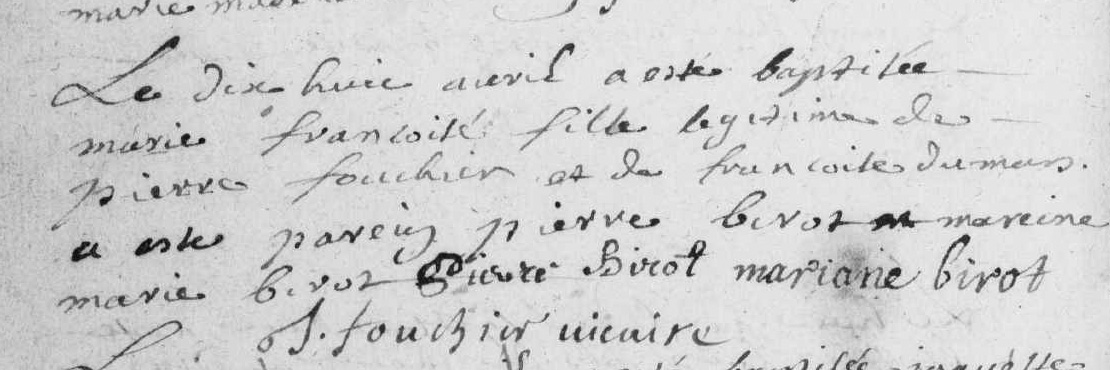 marie
Le dix huic auril a esté baptisée
marie francoise fille legitime de
pierre fouchier et de francoise dumans.
a este parein pierre birot et mareine
marie birot Pierre Birot mariane birot
J. fouchier uicaire
baptisée